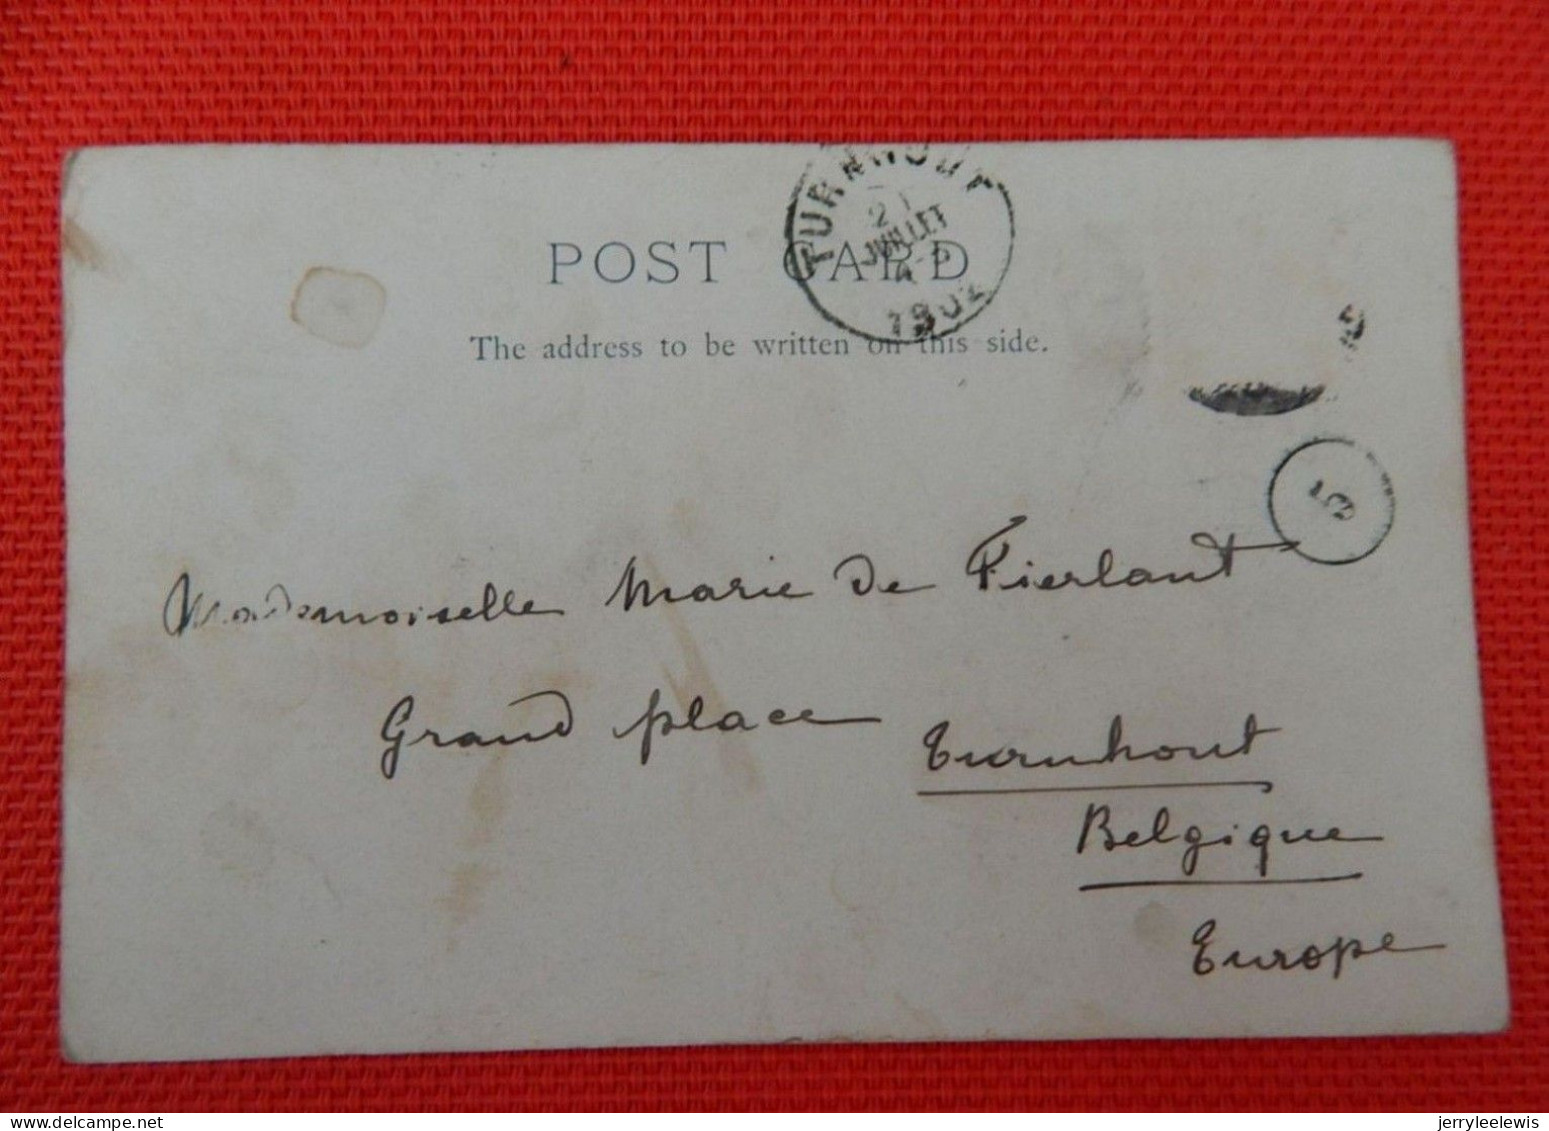 TURNHOUT
21
JUILLET
1902
POST CARD
The address to be written on this side.
5
Mademoiselle Marie de Fierlant
Grand place Turnhout
Belgique
Europe
delcampe.net
jerryleelewis